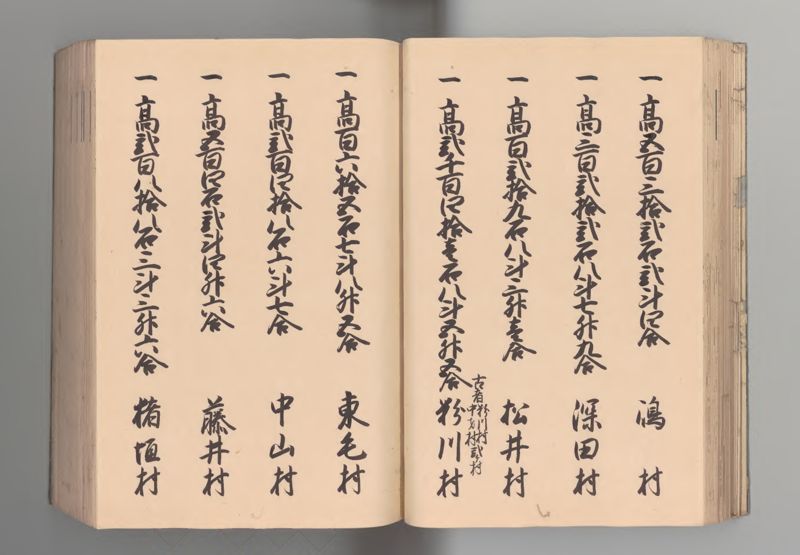 一高五百三拾弐石弐斗四合 鴻村
一高三百弐拾弐石八斗七升九合 深田村
一高百弐拾九石八斗三升壱合 松井村
一高弐千百四拾壱石八斗五升五合 粉川村
古者粉川村
中刻村弐村
一高百六拾五石七斗八升五合 東毛村
一高弐百四拾八石六斗七合 中山村
一高五百四石弐斗四升六合 藤井村
一高弐百八拾八石三斗三升六合 猪垣村